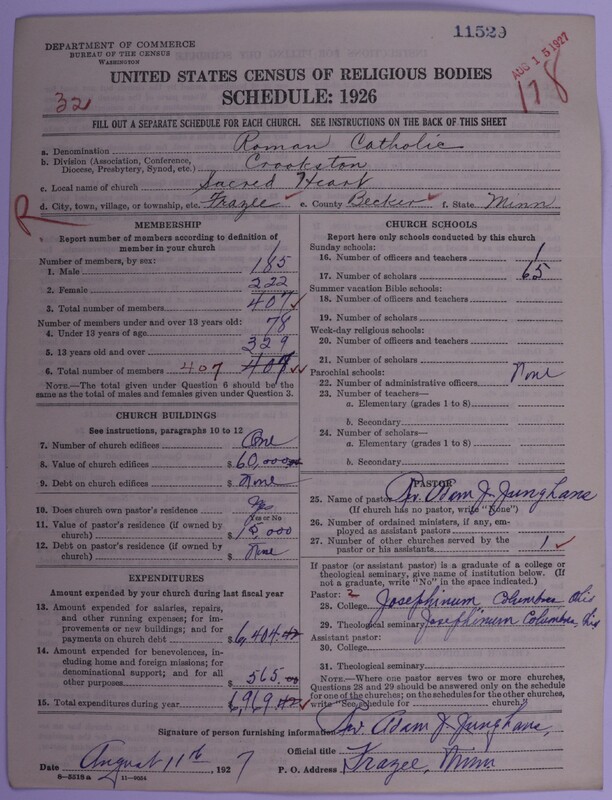 11529
DEPARTMENT OF COMMERCE
BUREAU OF THE CENSUS
WASHINGTON
AUG 15 1927
178
32
UNITED STATES CENSUS OF RELIGIOUS BODIES
SCHEDULE: 1926
FILL OUT A SEPARATE SCHEDULE FOR EACH CHURCH. SEE INSTRUCTIONS ON THE BACK OF THIS SHEET
a. Denomination Roman Catholic
b. Division (Association, Conference, Diocese, Presbytery, Synod, etc.) Crookston
c. Local name of church Sacred Heart
d. City, town, village, or township, etc. Frazee e. County Becker f. State Minn
R
MEMBERSHIP
Report number of members according to definition of
member in your church
Number of members, by sex:
1. Male 185
2. Female 222
3. Total number of members 407
Number of members under and over 13 years old:
4. Under 13 years of age 78
5. 13 years old and over 329
6. Total number of members 407 407
NOTE.—The total given under Question 6 should be the
same as the total of males and females given under Question 3.
CHURCH BUILDINGS
See instructions, paragraphs 10 to 12
7. Number of church edifices One
8. Value of church edifices $60,000
9. Debt on church edifices $None
10. Does church own pastor's residence Yes
(Yes or No)
11. Value of pastor's residence (if owned by
church) $15,000
12. Debt on pastor's residence (if owned by
church) $None
EXPENDITURES
Amount expended by your church during last fiscal year
13. Amount expended for salaries, repairs,
and other running expenses; for im-
provements or new buildings; and for
payments on church debt $6,404.42
14. Amount expended for benevolences, in-
cluding home and foreign missions; for
denominational support; and for all
other purposes $565.00
15. Total expenditures during year $6,969.42
CHURCH SCHOOLS
Report here only schools conducted by this church
Sunday schools:
16. Number of officers and teachers 1
17. Number of scholars 65
Summer vacation Bible schools:
18. Number of officers and teachers
19. Number of scholars
Week-day religious schools:
20. Number of officers and teachers
21. Number of scholars
Parochial schools:
22. Number of administrative officers None
23. Number of teachers—
a. Elementary (grades 1 to 8)
b. Secondary
24. Number of scholars—
a. Elementary (grades 1 to 8)
b. Secondary
PASTOR
25. Name of pastor Rev. Adam J. Junghans
(If church has no pastor, write "None")
26. Number of ordained ministers, if any, em-
ployed as assistant pastors
27. Number of other churches served by the
pastor or his assistants 1
If pastor (or assistant pastor) is a graduate of a college or
theological seminary, give name of institution below. (If
not a graduate, write "No" in the space indicated.)
Pastor: 2
28. College Josephinum Columbus Ohio
29. Theological seminary Josephinum Columbus, Ohio
Assistant pastor:
30. College
31. Theological seminary
NOTE.—Where one pastor serves two or more churches,
Questions 28 and 29 should be answered only on the schedule
for one of the churches; on the schedules for the other churches,
write "See schedule for church."
Signature of person furnishing information Rev. Adam J. Junghans,
Official title
Date August 11th, 1927 P. O. Address Frazee, Minn
8—5518a 11—9054